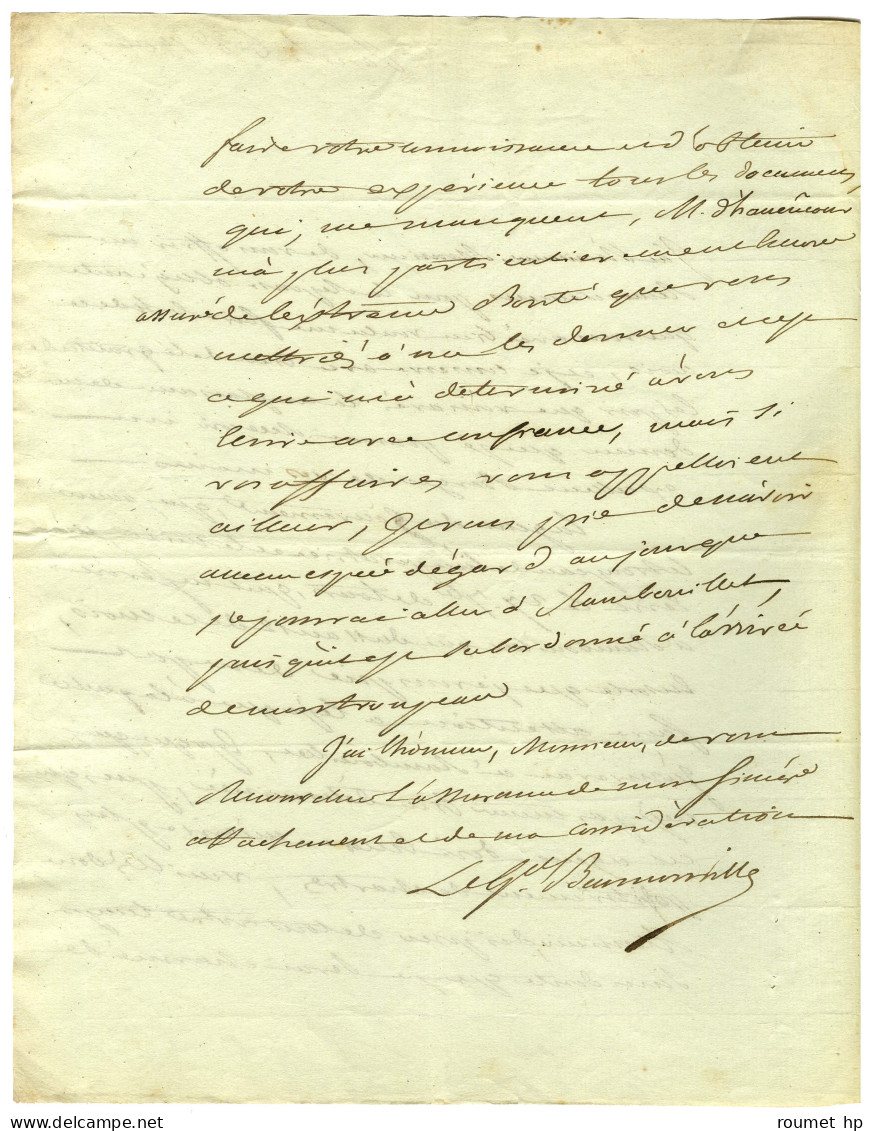 faire votre connoissance et d'obtenir
de votre expérience tous les documens
qui, me manquent, M. d'hauencour
m'à plus particulierement encore
assuré de l'éxtreme Bonté que vous
mettriés à me les donner, c'est
ce qui m'à determiné à vous
Ecrire avec confiance, mais si
vos affaires vous appelloient
ailleur, Je vous prie de n'avoir
aucun espèce dégard au jour que
je pourrai aller à Rambouillet,
puisqu'il est subordonné à l'arrivée
de mon troupeau
J'ai l'honneur, Monsieur, de vous
Renouveller l'assurance de mon sincère
attachement et de ma considération
Le Gal Beurnonville
roumet hp